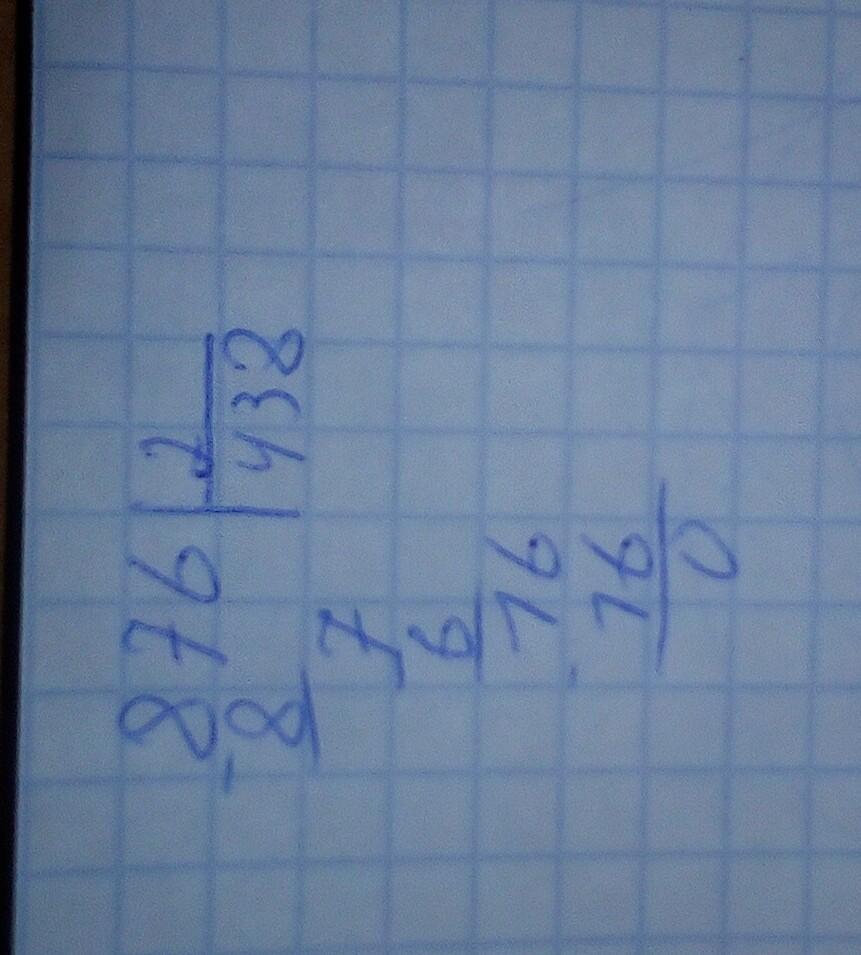 876 | 2
-8 | 438
7
-6
16
-16
0